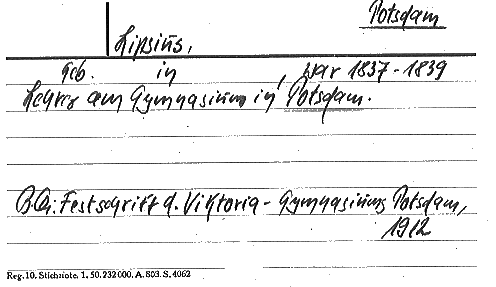 Potsdam
Lipsius,
Geb. in , war 1837-1839
Lehrer am Gymnasium in Potsdam.
B.Qu.: Festschrift d. Viktoria-Gymnasiums Potsdam,
1912
Reg. 10. Stichnote. 1. 50. 232000. A. 803. S. 4062